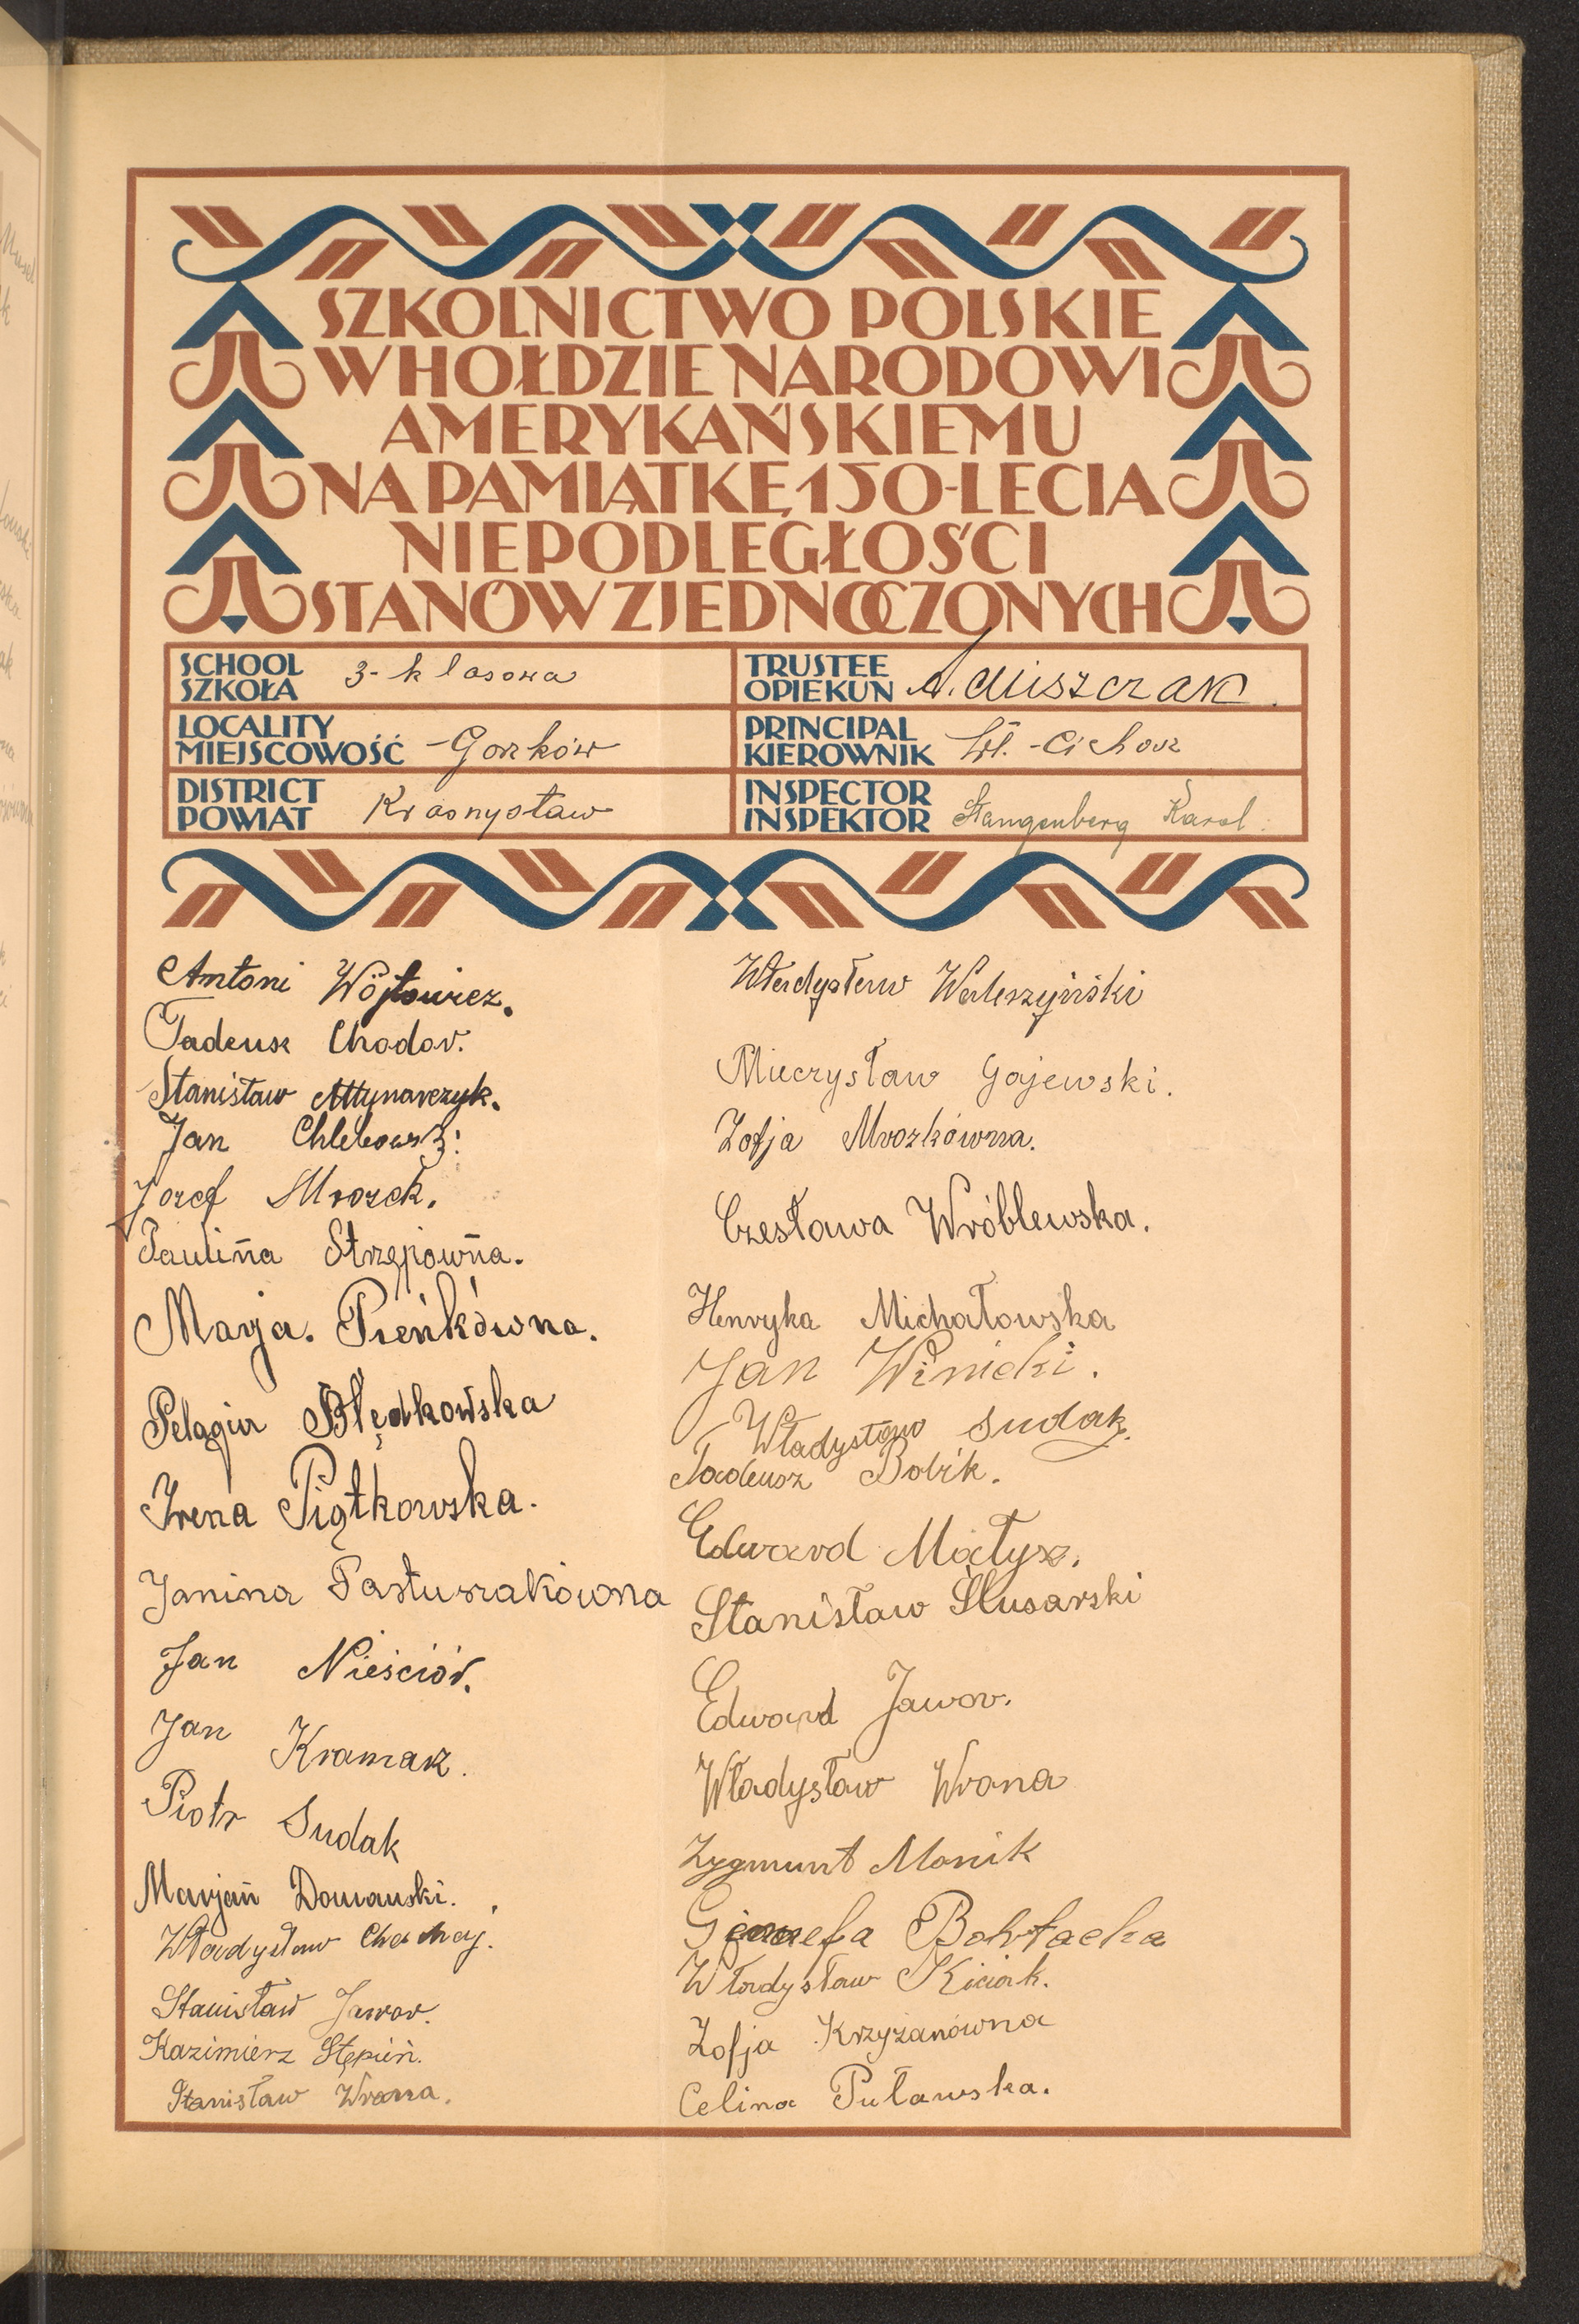 SZKOLNICTWO POLSKIE
W HOŁDZIE NARODOWI
AMERYKAŃSKIEMU
NA PAMIĄTKĘ 150-LECIA
NIEPODLEGŁOŚCI
STANÓW ZJEDNOCZONYCH
SCHOOL
SZKOŁA 3-klasowa
TRUSTEE
OPIEKUN A. Miszczak
LOCALITY
MIEJSCOWOŚĆ Gorzków
PRINCIPAL
KIEROWNIK Wł. Cichosz
DISTRICT
POWIAT Krasnystaw
INSPECTOR
INSPEKTOR Stangenberg Karol
Antoni Wójtowicz.
Tadeusz Chodor.
Stanisław Młynarczyk.
Jan Chlebowski
Józef Mrozek.
Paulina Strzępówna.
Marja. Pieńkówna.
Pelagia Błędkowska
Irena Piątkowska.
Janina Pastuszakówna
Jan Nieściór.
Jan Kramarz.
Piotr Sudak
Marjan Domański.
Władysław
Stanisław Jawor.
Kazimierz Stępień.
Stanisław Wrona.
Władysław Waleszyński
Mieczysław Gajewski.
Zofja Mrozkówna.
Czesława Wróblewska.
Henryka Michałowska
Jan Winicki.
Władysław Sudak.
Tadeusz Bobik.
Edward Matysz.
Stanisław Ślusarski
Edward Jawor.
Władysław Wrona
Zygmunt Monik
Władysław Kiciak.
Zofja Krzyżanówna
Celina Puławska.